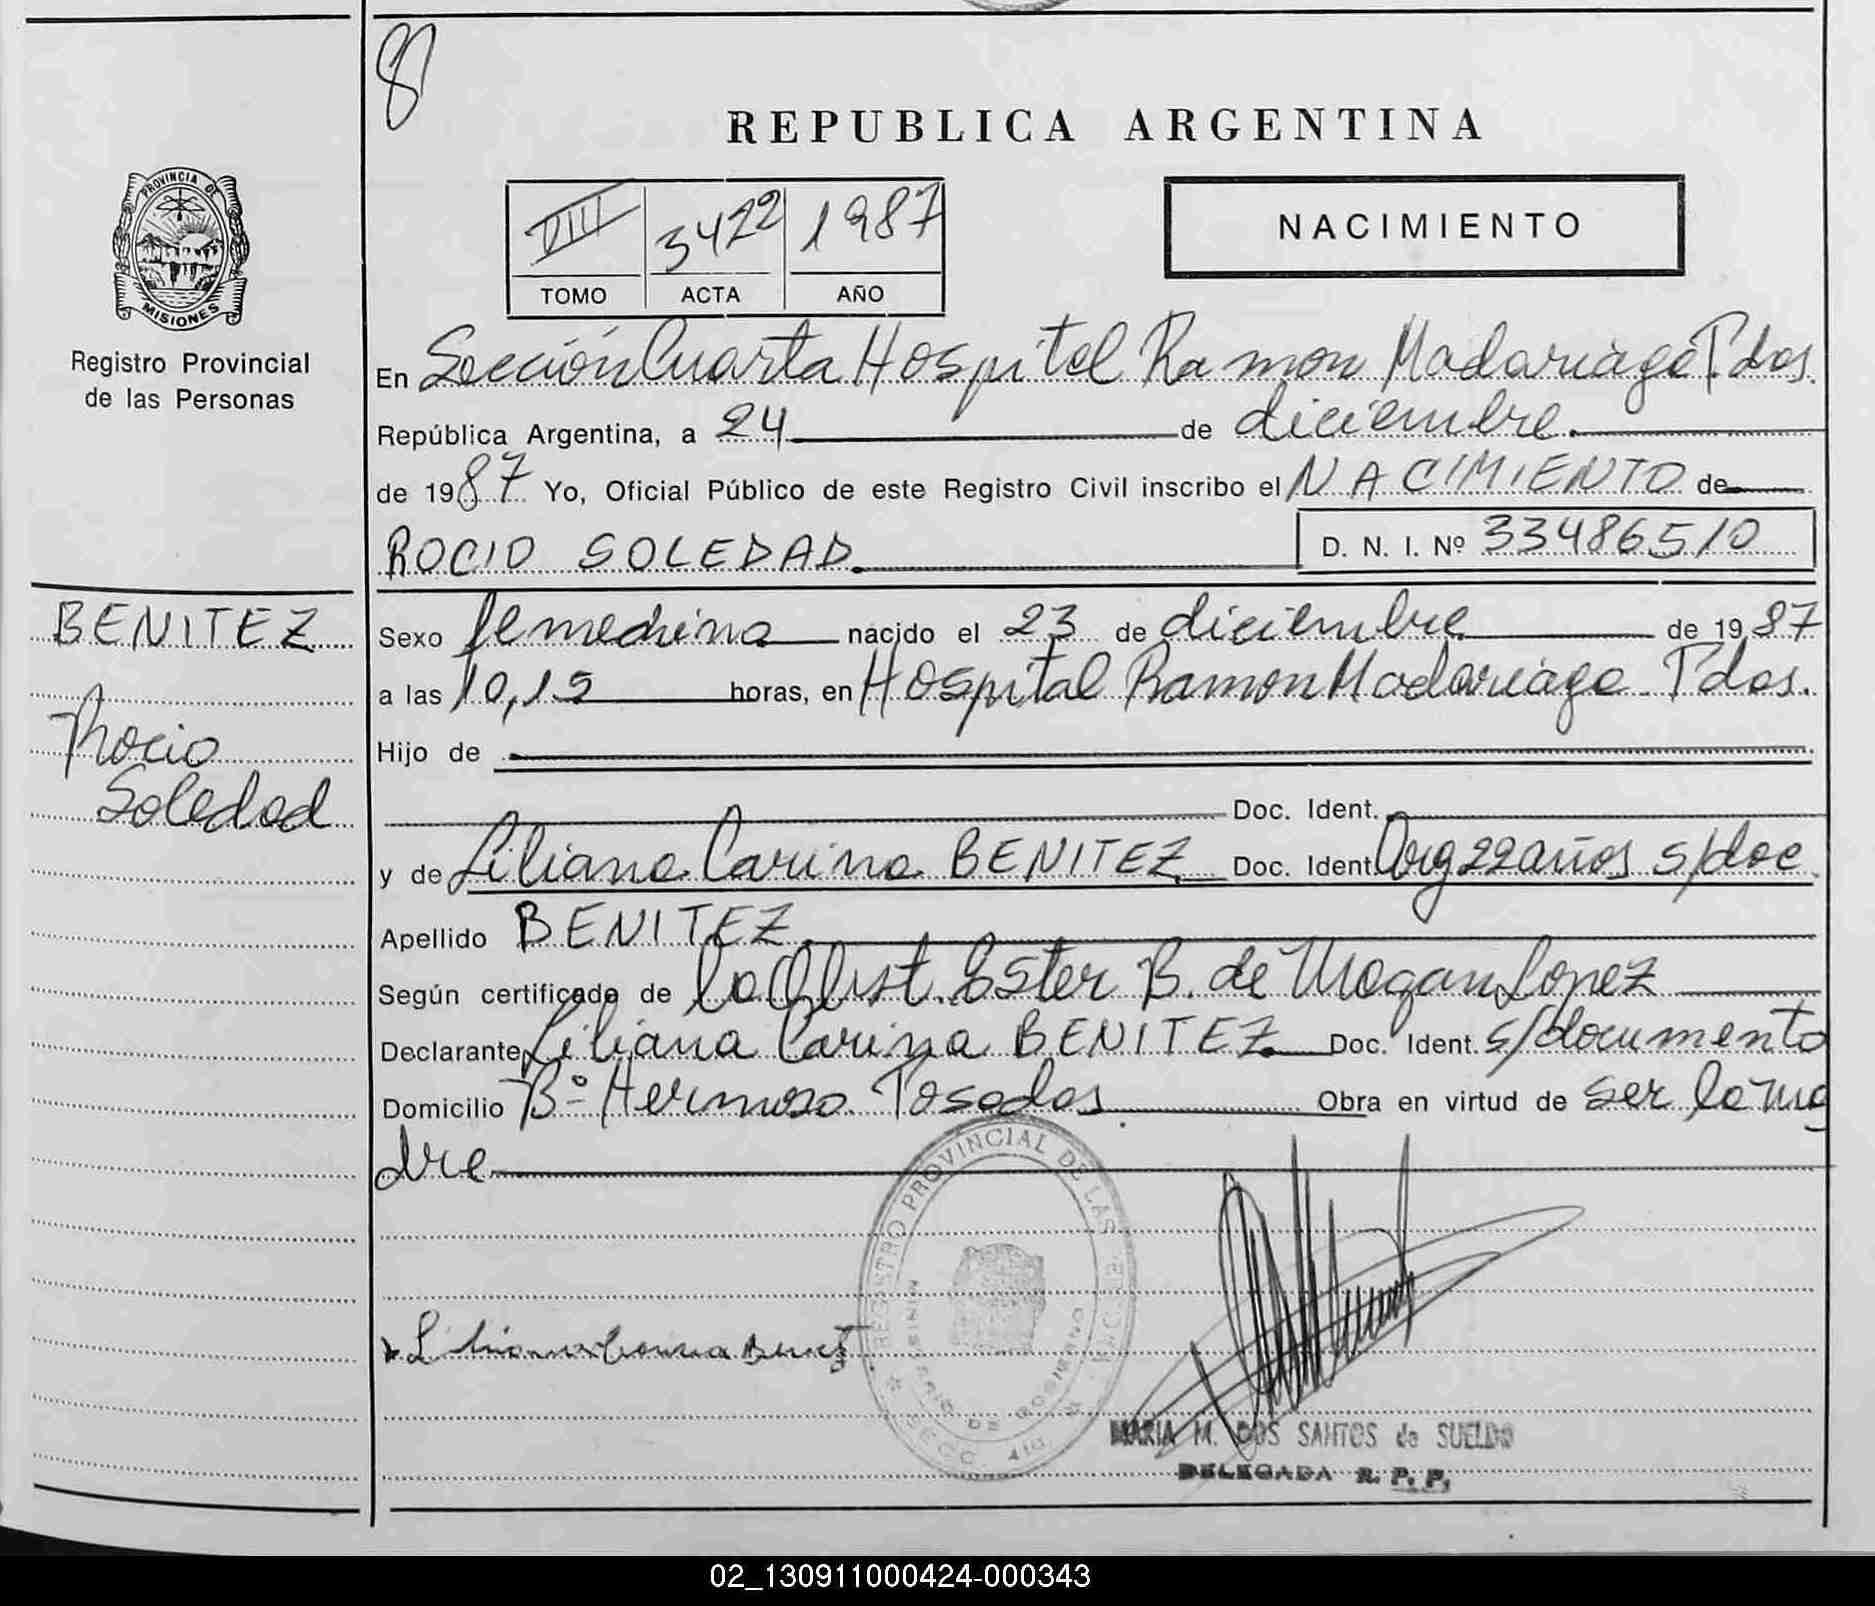 8
REPUBLICA ARGENTINA
PROVINCIA DE
MISIONES
Registro Provincial
de las Personas
VIII 3422 1987
TOMO ACTA AÑO
NACIMIENTO
En Sección Cuarta Hospital Ramon Madariaga Pdas.
República Argentina, a 24 de diciembre.
de 1987 Yo, Oficial Público de este Registro Civil inscribo el NACIMIENTO de
ROCIO SOLEDAD.
D. N. I. Nº 33486510
BENITEZ
Rocio
Soledad
Sexo femenina nacido el 23 de diciembre de 1987
a las 10,15 horas, en Hospital Ramon Madariaga Pdas.
Hijo de
Doc. Ident.
y de Liliana Carina BENITEZ Doc. Ident. Arg 22 años s/doc
Apellido BENITEZ
Según certificado de la Obst. Ester B. de Lopez
Declarante Liliana Carina BENITEZ. Doc. Ident. s/documento
Domicilio Bº Hermoso Posadas Obra en virtud de ser la ma
dre
REGISTRO PROVINCIAL DE LAS PERSONAS
MINISTERIO DE GOBIERNO
SECC. 4ta.
Liliana Carina Benitez
MARIA M. DOS SANTOS de SUELDO
DELEGADA R. P. P.
02_130911000424-000343